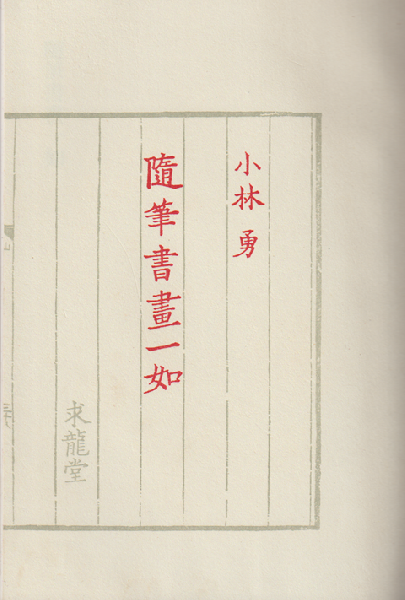 小林 勇
隨筆書畫一如
求龍堂